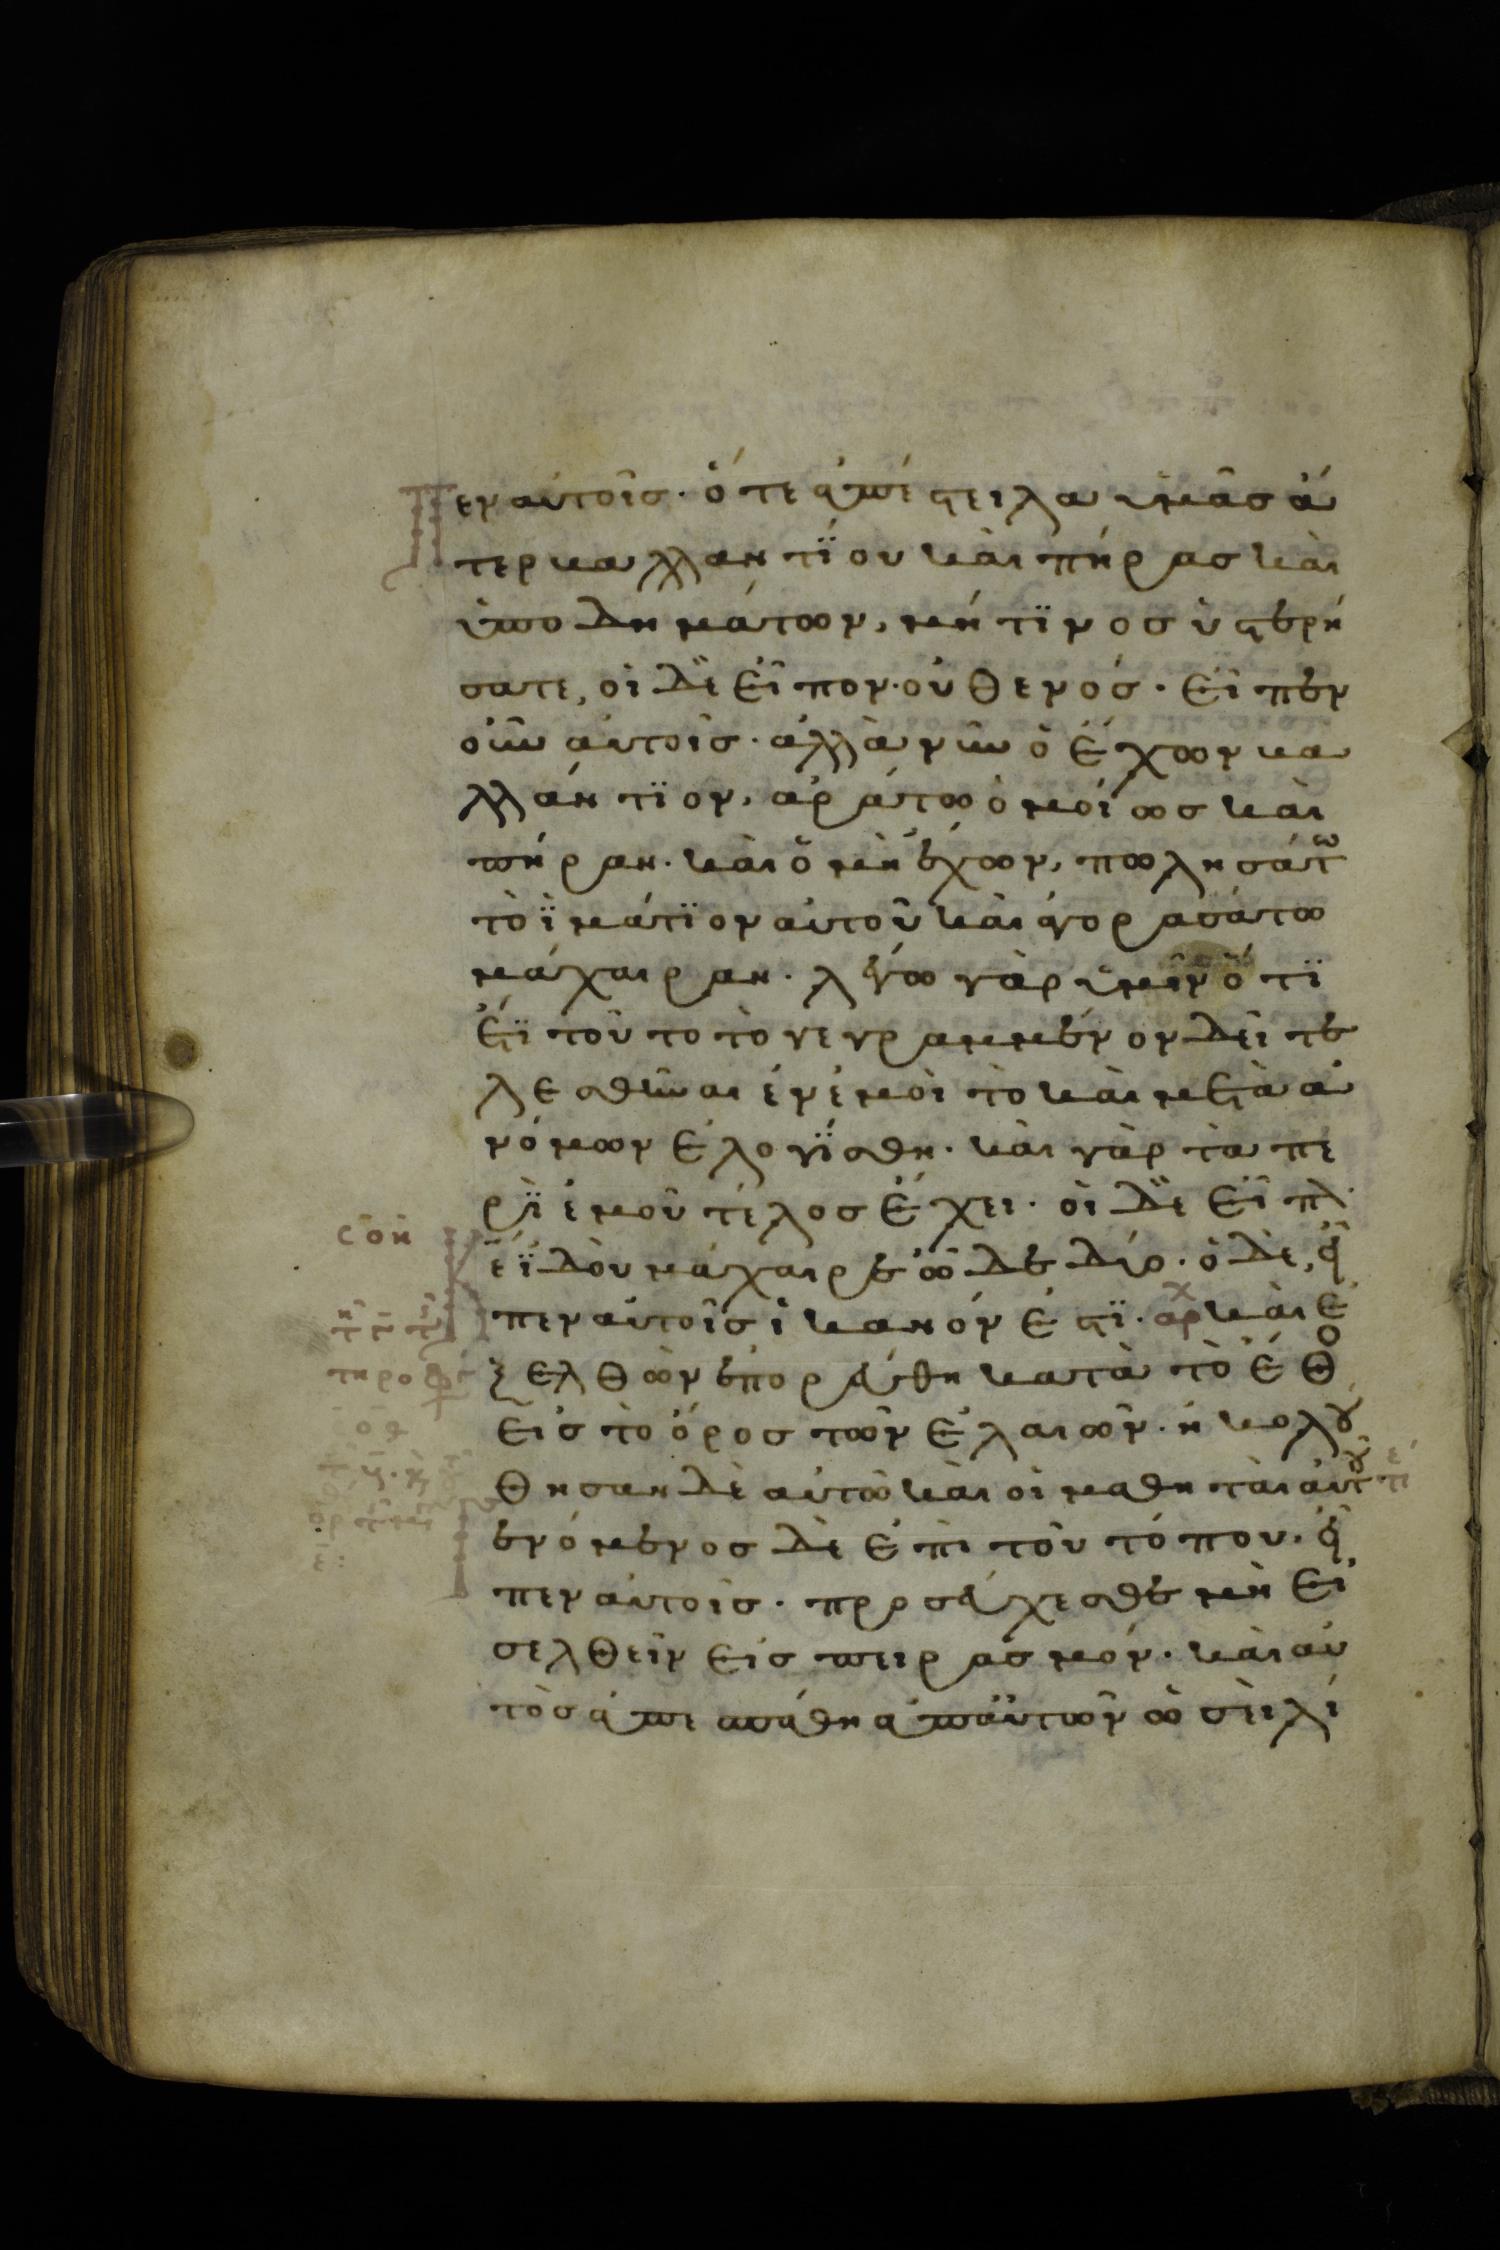 Πεν αυτοῖσ· ὅτε ἀπέστειλα ὑμᾶσ ἄ
τερ καλλαντΐου καὶ πήρασ καὶ
ὑποδημάτων, μή τϊνοσ ὑστερή
σατε, οἱ δὲ εἶπον· οὐθενόσ· εἶπεν
οὖν αὐτοῖσ· ἀλλὰ νῦν ὁ ἔχων κα
λλάντϊον, ἀράτω ὁμοίωσ καὶ
πήραν· καὶ ὁ μὴ ἔχων, πωλησάτω
τὸ ϊμάτϊον αυτοῦ καὶ ἀγορασάτω
μάχαιραν· λέγω γὰρ ὑμῖν ὅτϊ
ἔτϊ τοῦτο τὸ γεγραμμένον δεῖ τε
λεσθῆναι ἐν ἐμοὶ τὸ καὶ μετὰ ἀ
νόμων ἐλογΐσθη· καὶ γὰρ τὰ πε
ρῒ ἐμοῦ τέλοσ ἔχει· οἱ δὲ εἶπον
εϊδοὺ μάχαιρε ὧδε δύο· ὁ δὲ, εἶ
πεν αὐτοῖσ ἱκανόν ἐστϊ· αρχ καὶ ἐ
ξελθὼν ἐπορεύθη κατὰ τὸ ἔθο
εἰσ τὸ ὄροσ τῶν ἐλαιῶν· ἠκολού
θησαν δὲ αὐτῶ καὶ οἱ μαθηταὶ αὐτοῦ
ενόμενοσ δὲ ἐπὶ τοῦ τόπου· εἶ
πεν αὐτοῖσ· προσεύχεσθε μὴ εἰ
σελθεῖν εἰσ πειρασμόν· καὶ αὐ
τὸσ ἀπεσπάσθη ἀπ' αὐτῶν ὡσεὶ λί